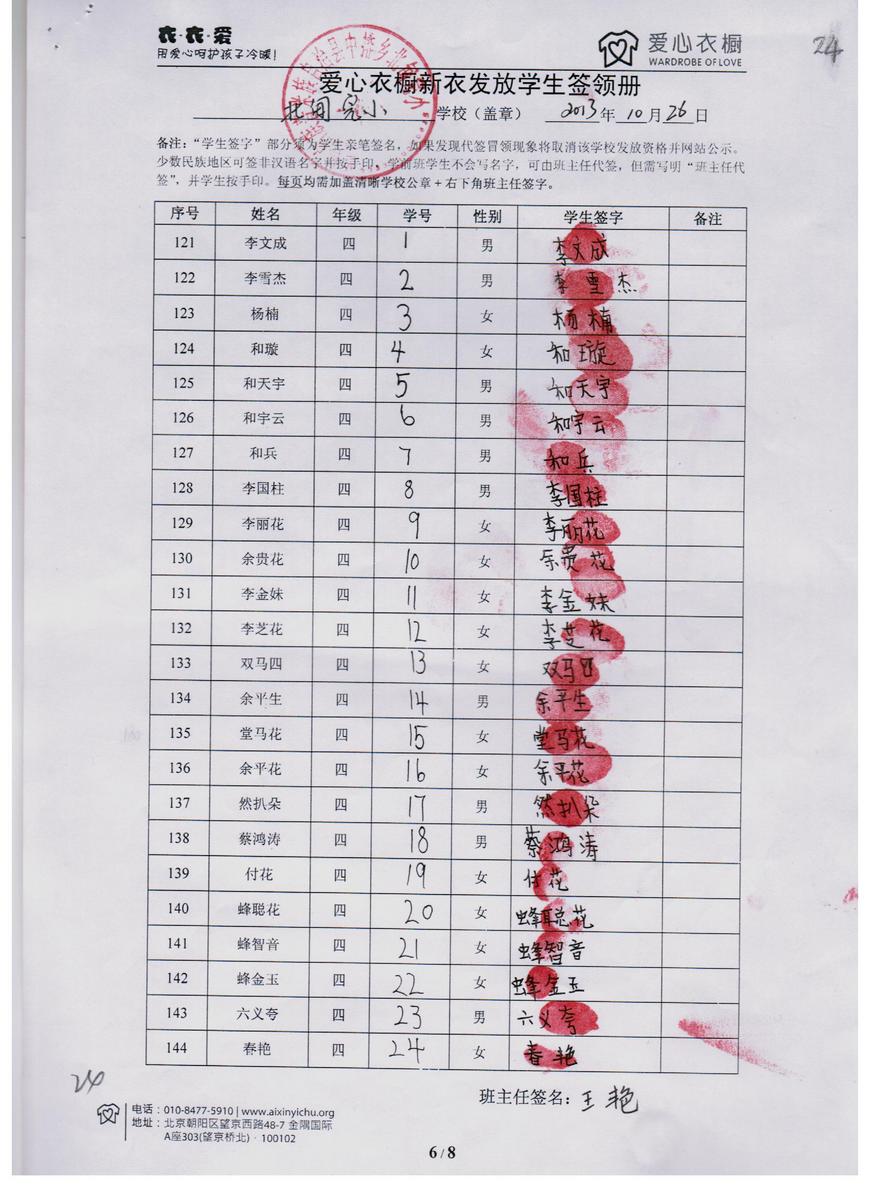 衣·衣·爱
用爱心呵护孩子冷暖！
爱心衣橱
WARDROBE OF LOVE
24
爱心衣橱新衣发放学生签领册
北甸完小 学校（盖章） 2013年10月26日
备注：“学生签字”部分须为学生亲笔签名，如果发现代签冒领现象将取消该学校发放资格并网站公示。
少数民族地区可签非汉语名字并按手印，学前班学生不会写名字，可由班主任代签，但需写明“班主任代
签”，并学生按手印。每页均需加盖清晰学校公章＋右下角班主任签字。
序号 姓名 年级 学号 性别 学生签字 备注
121 李文成 四 1 男 李文成
122 李雪杰 四 2 男 李雪杰
123 杨楠 四 3 女 杨楠
124 和璇 四 4 女 和璇
125 和天宇 四 5 男 和天宇
126 和宇云 四 6 男 和宇云
127 和兵 四 7 男 和兵
128 李国柱 四 8 男 李国柱
129 李丽花 四 9 女 李丽花
130 余贵花 四 10 女 余贵花
131 李金妹 四 11 女 李金妹
132 李芝花 四 12 女 李芝花
133 双马四 四 13 女 双马四
134 余平生 四 14 男 余平生
135 堂马花 四 15 女 堂马花
136 余平花 四 16 女 余平花
137 然扒朵 四 17 男 然扒朵
138 蔡鸿涛 四 18 男 蔡鸿涛
139 付花 四 19 女 付花
140 蜂聪花 四 20 女 蜂聪花
141 蜂智音 四 21 女 蜂智音
142 蜂金玉 四 22 女 蜂金玉
143 六义夸 四 23 男 六义夸
144 春艳 四 24 女 春艳
24
班主任签名：王艳
电话：010-8477-5910 | www.aixinyichu.org
地址：北京朝阳区望京西路48-7 金隅国际
A座303(望京桥北)·100102
6 / 8